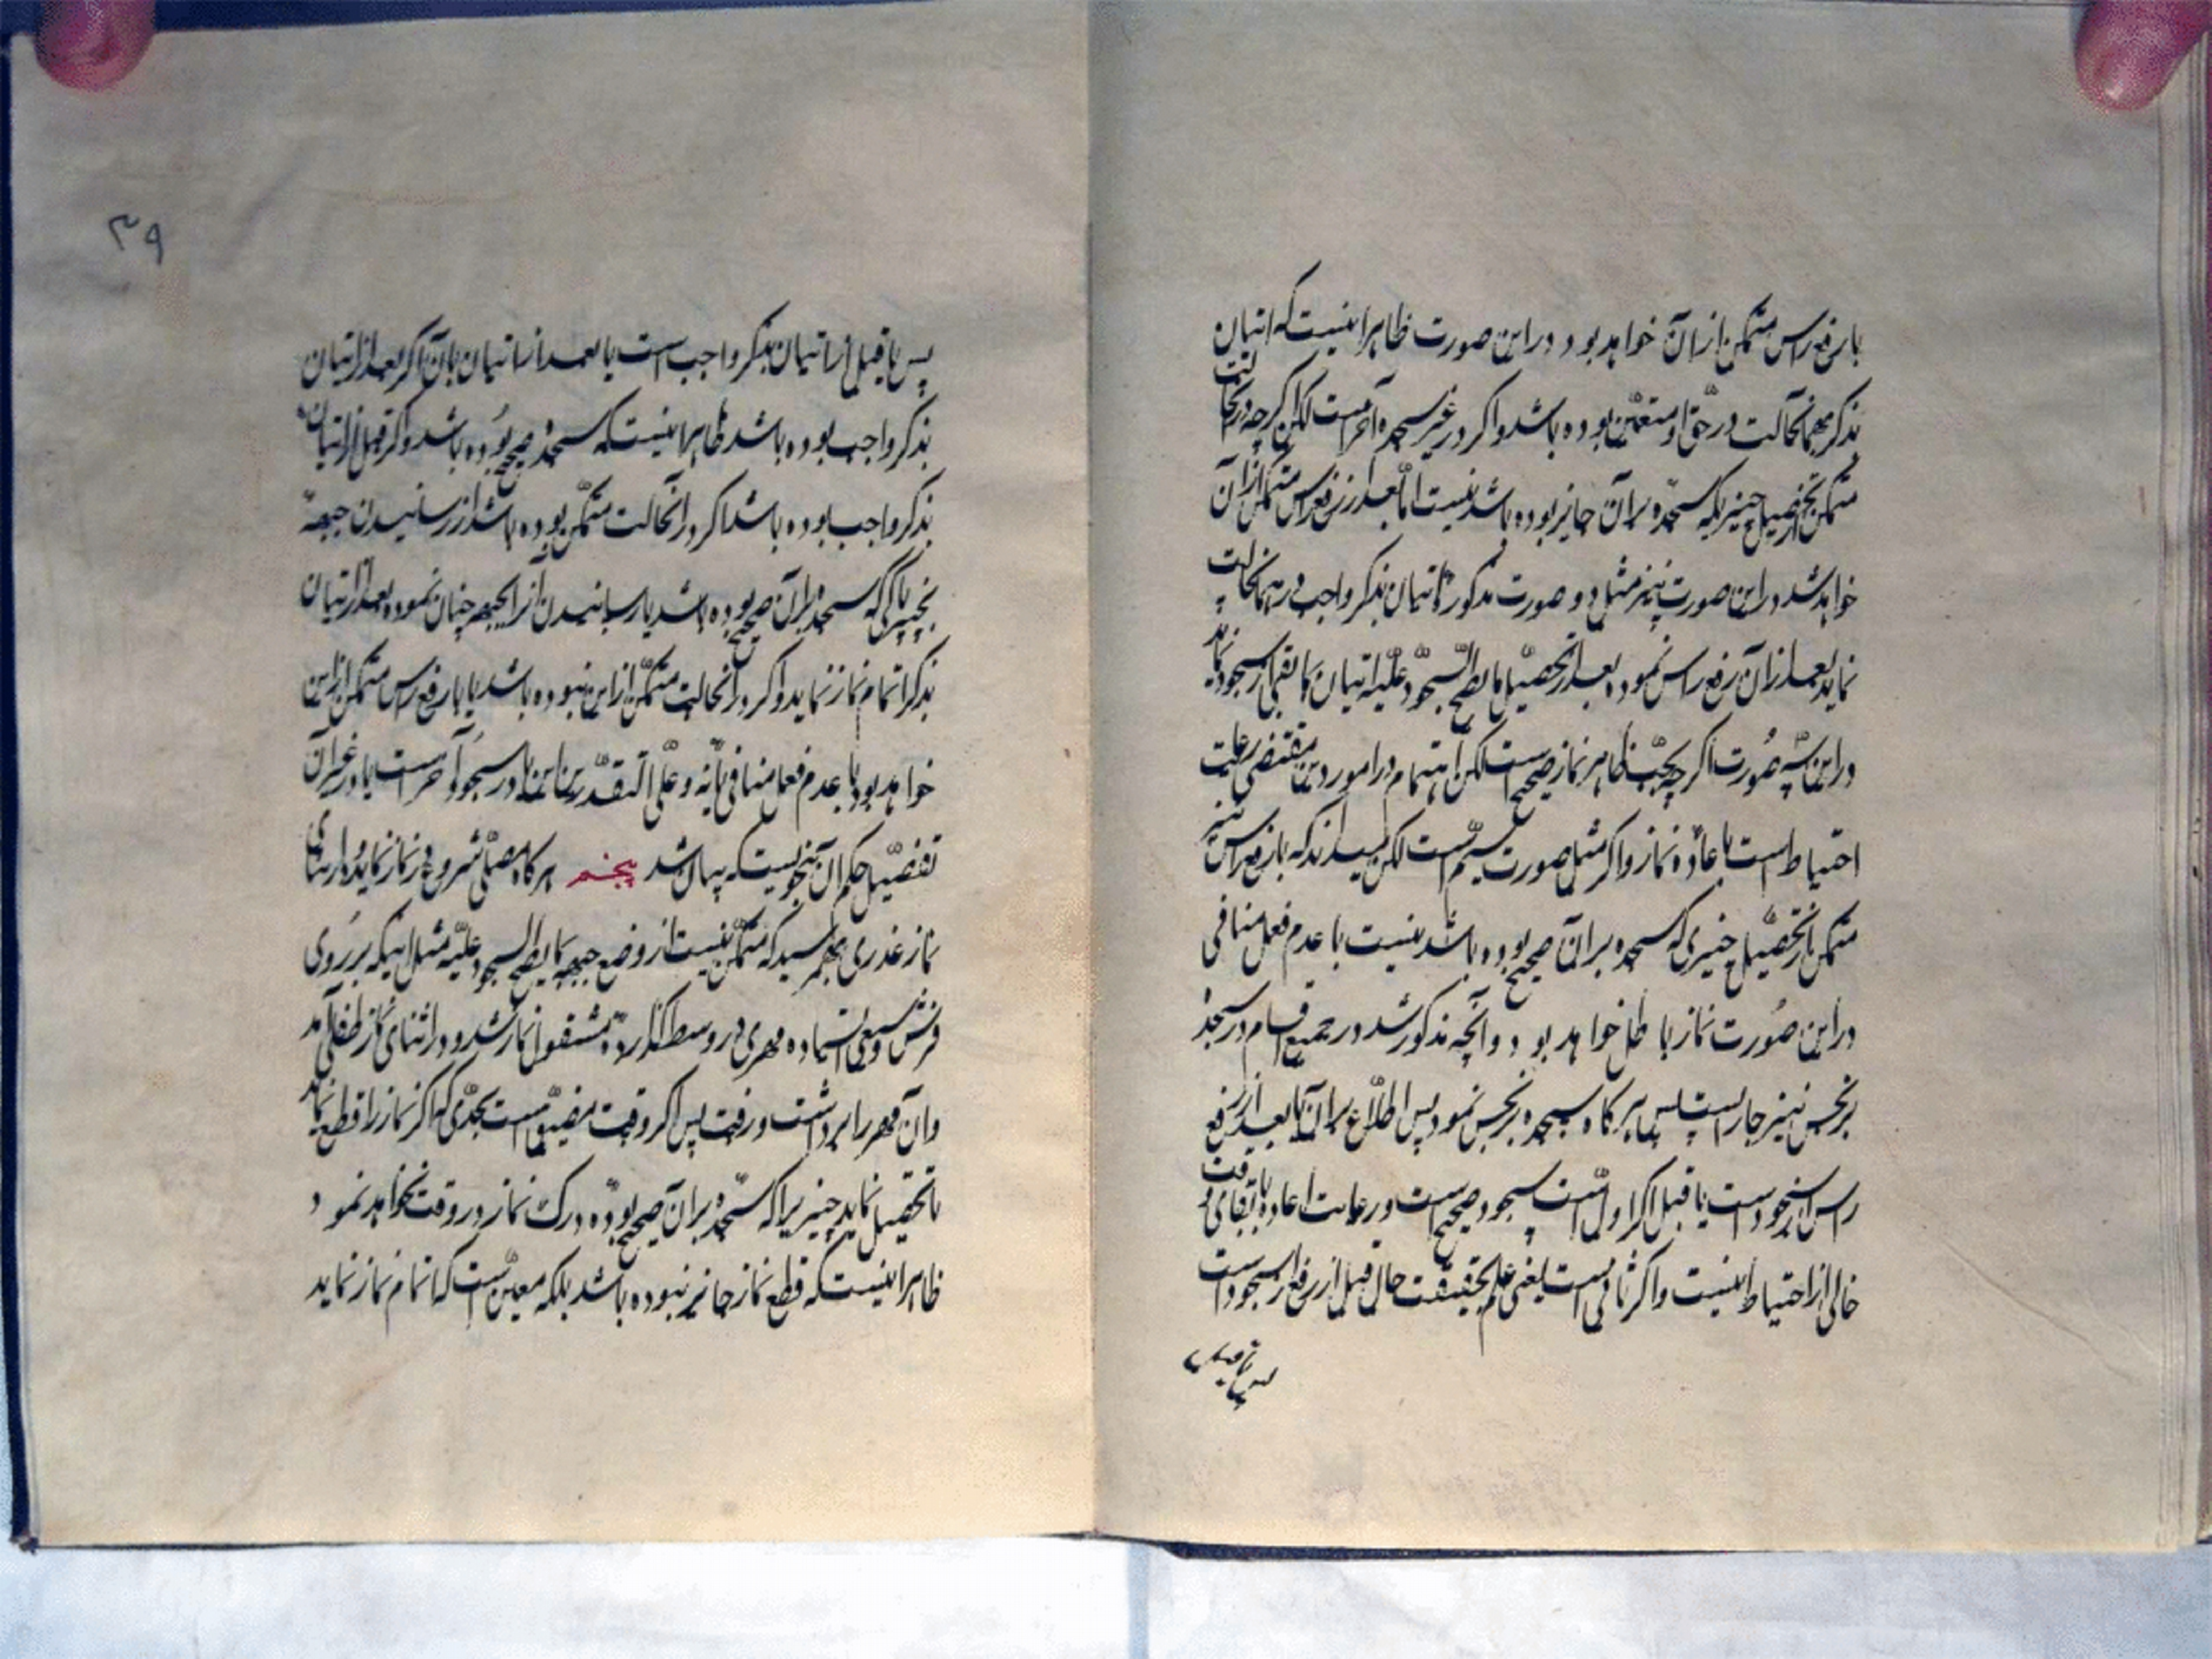 بارفع راس متمکن از ان خواهد بود در این صورت ظاهر اینست که اتیان
بذکر بهمانحالت در حق او متعین بوده باشد و اگر در غیر سجده آخر است لکن اگر چه در انحالت
متمکن از تحصیل چیزیکه سجده بر آن جایز بوده باشد نیست اما بعد از رفع راس متمکن از آن
خواهد شد در این صورت نیز مثل دو صورت مذکوره اتیان بذکر واجب در همانحالت
نماید بعد از آن رفع راس نموده بعد از تحصیل ما یصح السجود علیه اتیان بما بقی از سجود نماید
در این سه صورت اگر چه بحسب ظاهر نماز صحیح است لکن اهتمام در امور دین مقتضی رعایت
احتیاط است باعاده نماز و اگر مثل صورت سیم است لکن میداند که بارفع راس نیز
متمکن از تحصیل چیزی که سجده بر آن صحیح بوده باشد نیست با عدم فعل منافی
در این صورت نماز باطل خواهد بود و آنچه مذکور شد در جمیع اقسام در سجده
بر نجس نیز جاریست پس هر گاه سجده بر نجس نمود پس اطلاع بر آن یا بعد از رفع
راس از سجود است یا قبل اگر اول است سجود صحیح است و رعایت اعاده با بقای وقت
خالی از احتیاط نیست و اگر ثانی است یعنی علم بحقیقت حال قبل از رفع راس از سجود است
پس یا قبل
۳۹
پس یا قبل از اتیان بذکر واجب است یا بعد از اتیان بان اگر بعد از اتیان
بذکر واجب بوده باشد ظاهر اینست که سجده صحیح بوده باشد و اگر قبل از اتیان
بذکر واجب بوده باشد اگر در انحالت متمکن بوده باشد از رسانیدن جبهه
بچیز پاکی که سجده بر آن صحیح بوده باشد یا رسانیدن آنرا بجبهه چنان نموده بعد از اتیان
بذکر اتمام نماز نماید و اگر در انحالت متمکن از این نبوده باشد یا بارفع راس متمکن از این
خواهد بود با عدم فعل منافی یا نه و علی التقدیرین این یا در سجود آخر است یا در غیر آن
تفصیل حکم آن بنحویست که بیان شد پنجم هر گاه مصلی شروع در نماز نماید و در اثنای
نماز عذری بهم رسید که متمکن نیست از وضع جبهه بما یصح السجود علیه مثل اینکه بر روی
فرش وسیعی ایستاده مهری در وسط گذارده مشغول نماز شد و در اثنای نماز طفلی آمد
و آن مهر را برداشت و رفت پس اگر وقت مضیق است بحدی که اگر نماز را قطع نماید
تا تحصیل نماید چیزیرا که سجده بر آن صحیح بوده درک نماز در وقت نخواهد نمود
ظاهر اینست که قطع نماز جایز نبوده باشد بلکه معین است که اتمام نماز نماید